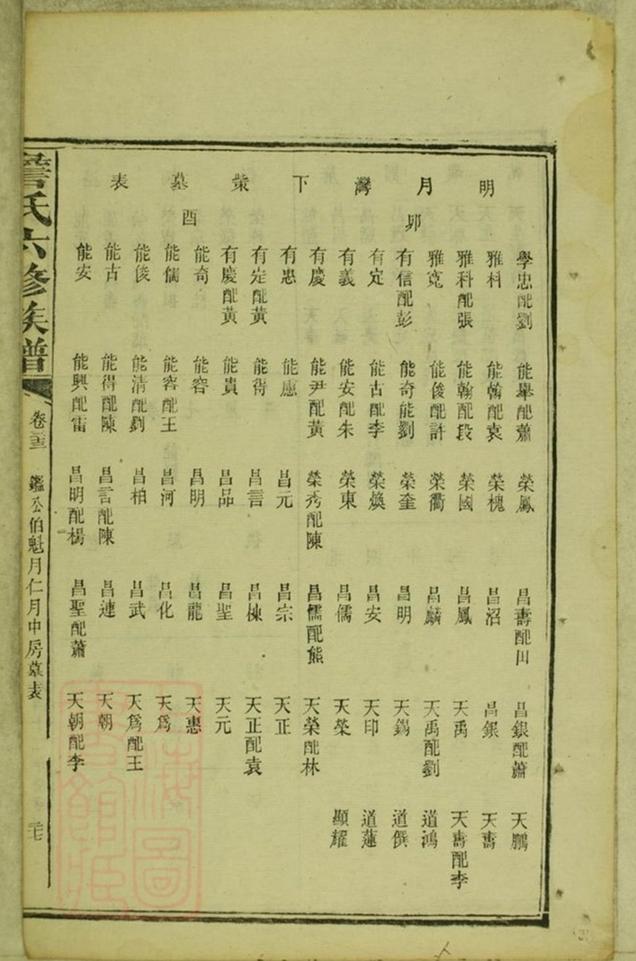 明月灣下墓表
卯
酉
學忠配劉 能舉配蕭 榮鳳 昌壽配田 昌銀配蕭 天鵬
雅科 能翰配袁 榮槐 昌沼 昌銀 天壽
雅科配張 能翰配段 榮國 昌鳳 天禹 天壽配李
雅寬 能俊配許 榮衢 昌麟 天禹配劉 道鴻
有信配彭 能奇能劉 榮奎 昌明 天錫 道僎
有定 能古配李 榮煥 昌安 天印 道蓮
有義 能安配朱 榮東 昌儒 天榮 顯耀
有慶 能尹配黃 榮秀配陳 昌懦配熊 天榮配林
有忠 能應 昌元 昌宗 天正
有定配黃 能得 昌言 昌棟 天正配袁
有慶配黃 能貴 昌品 昌聖 天元
能奇 能容 昌明 昌龍 天惠
能儒 能容配王 昌河 昌化 天爲
能俊 能清配劉 昌柏 昌武 天爲配王
能古 能得配陳 昌言配陳 昌連 天朝
能安 能興配雷 昌明配楊 昌聖配蕭 天朝配李
氏六修族譜
鑑公伯魁月仁月中房墓表